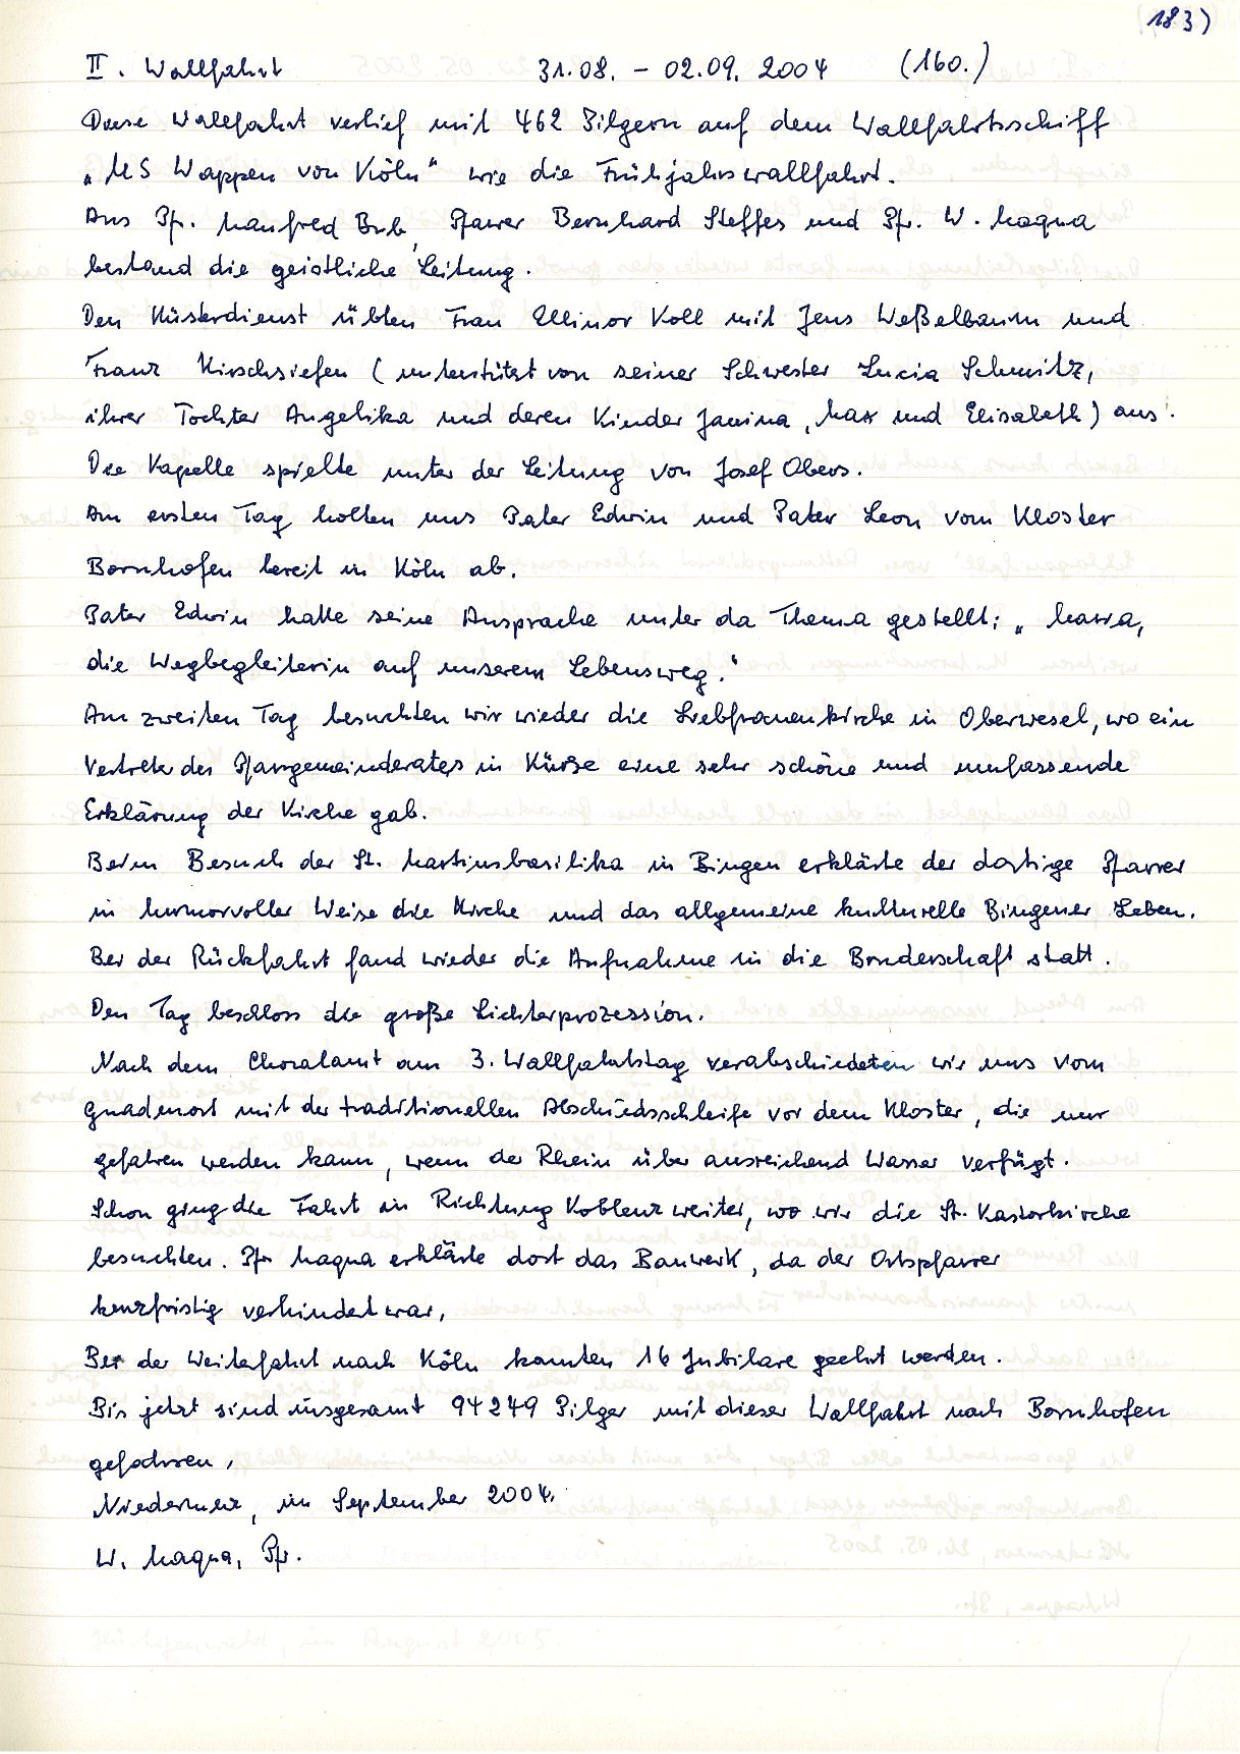 183)
II. Wallfahrt 31.08. - 02.09. 2004 (160.)
Diese Wallfahrt verlief mit 462 Pilgern auf dem Wallfahrtsschiff
„MS Wappen von Köln" wie die Frühjahrswallfahrt.
Aus Pfr. Manfred Bub, Pfarrer Bernhard Steffes und Pfr. W. Maqua
bestand die geistliche Leitung.
Den Küsterdienst übten Frau Ellinor Koll mit Jens Weßelbaum und
Franz Kirschsiefen (unterstützt von seiner Schwester Lucia Schmitz,
ihrer Tochter Angelika und deren Kinder Janina, Max und Elisabeth) aus.
Die Kapelle spielte unter der Leitung von Josef Obers.
Am ersten Tag holten uns Pater Edwin und Pater Leon vom Kloster
Bornhofen bereit in Köln ab.
Pater Edwin hatte seine Ansprache unter da Thema gestellt: „Maria,
die Wegbegleiterin auf unserem Lebensweg."
Am zweiten Tag besuchten wir wieder die Liebfrauenkirche in Oberwesel, wo ein
Vertreter des Pfarrgemeinderates in Kürze eine sehr schöne und umfassende
Erklärung der Kirche gab.
Beim Besuch der St. Martinsbasilika in Bingen erklärte der dortige Pfarrer
in humorvoller Weise die Kirche und das allgemeine kulturelle Bingener Leben.
Bei der Rückfahrt fand wieder die Aufnahme in die Bruderschaft statt.
Den Tag beschloss die große Lichterprozession.
Nach dem Choralamt am 3. Wallfahrtstag verabschiedeten wir uns vom
Gnadenort mit der traditionellen Abschiedsschleife vor dem Kloster, die nur
gefahren werden kann, wenn der Rhein über ausreichend Wasser verfügt.
Schon ging die Fahrt in Richtung Koblenz weiter, wo wir die St. Kastorkirche
besuchten. Pfr Maqua erklärte dort das Bauwerk, da der Ortspfarrer
kurzfristig verhindert war.
Bei der Weiterfahrt nach Köln konnten 16 Jubilare geehrt werden.
Bis jetzt sind insgesamt 94249 Pilger mit dieser Wallfahrt nach Bornhofen
gefahren.
Niedermerz, im September 2004.
W. Maqua, Pfr.